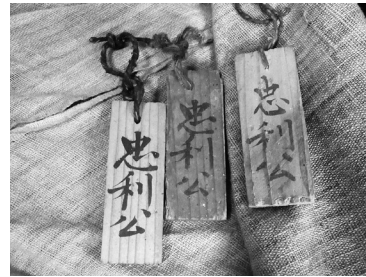 忠利公
忠利公
忠利公